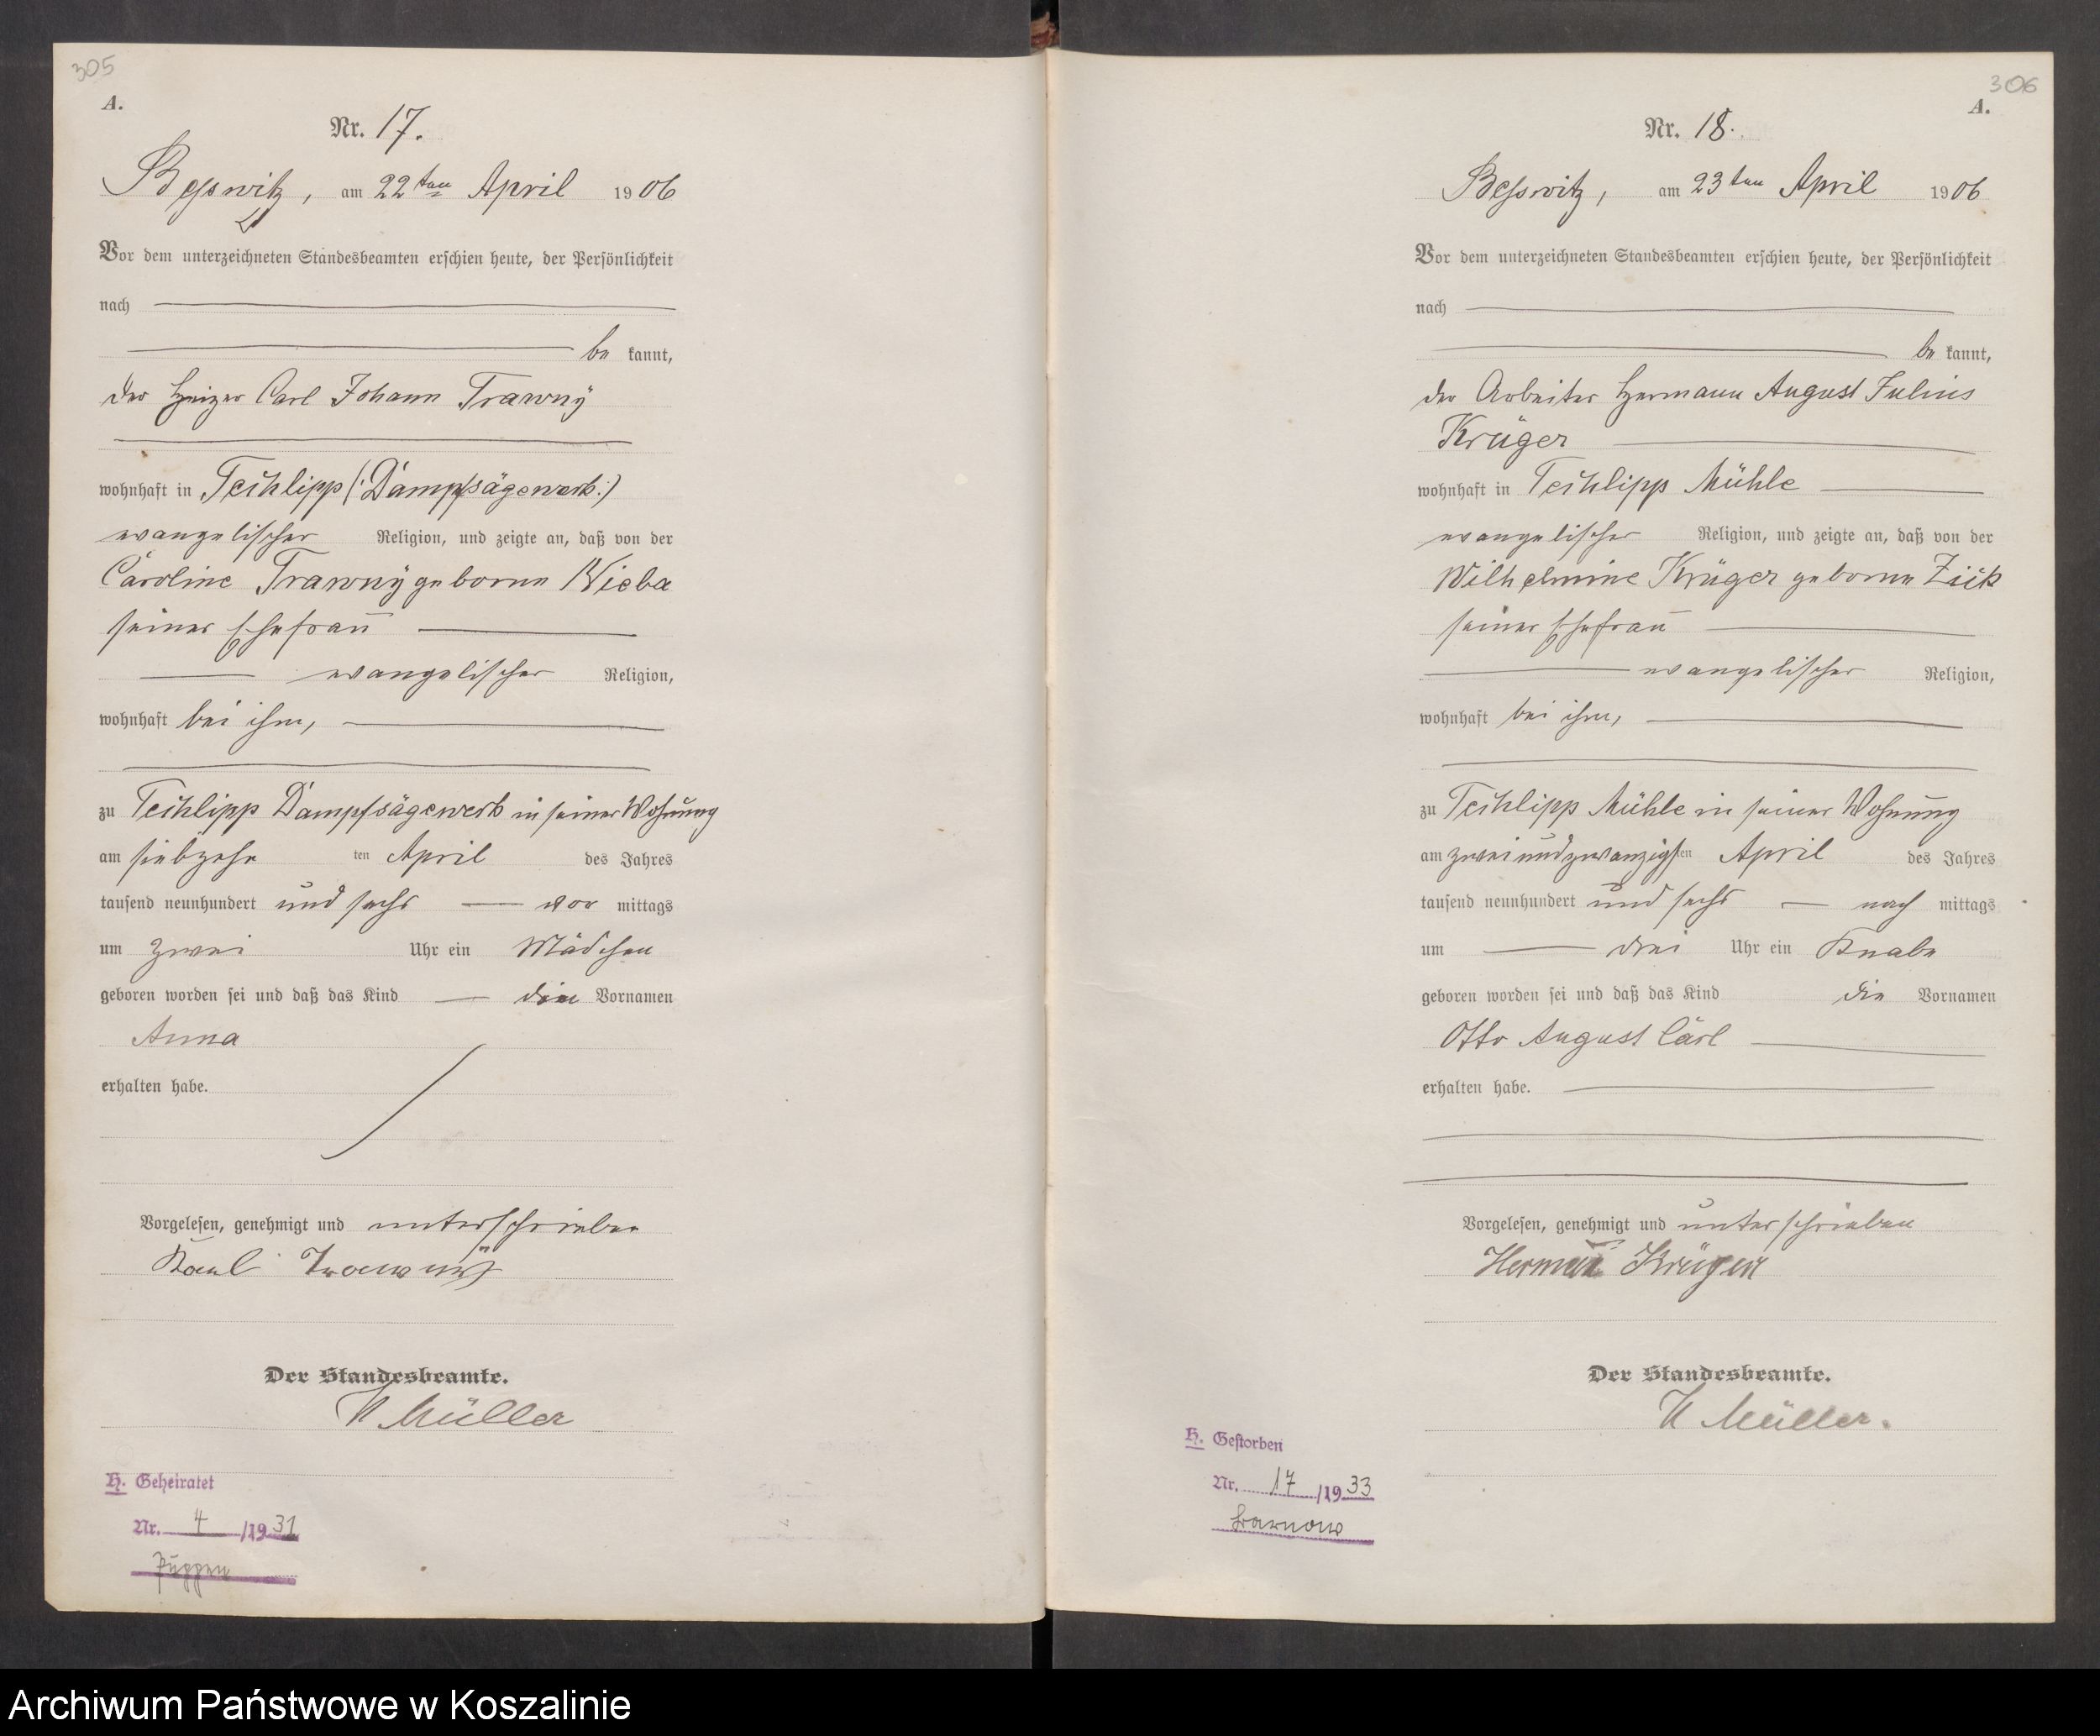 305
A.
Nr. 17.
Besswitz, am 22ten April 1906
Vor dem unterzeichneten Standesbeamten erschien heute, der Persönlichkeit
nach
be kannt,
der Heizer Carl Johann Trawnÿ
wohnhaft in Techlipp (: Dampfsägewerk :)
evangelischer Religion, und zeigte an, daß von der
Caroline Trawnÿ geborne Nieba
seiner Ehefrau
evangelischer Religion,
wohnhaft bei ihm,
zu Techlipp Dampfsägewerk in seiner Wohnung
am siebzehn ten April des Jahres
tausend neunhundert und sechs vor mittags
um zwei Uhr ein Mädchen
geboren worden sei und daß das Kind den Vornamen
Anna
erhalten habe.
Vorgelesen, genehmigt und unterschrieben
Karl Trawnÿ
Der Standesbeamte.
Müller
H. Geheiratet
Nr. 4 /1931
Puppen
306
A.
Nr. 18.
Besswitz, am 23ten April 1906
Vor dem unterzeichneten Standesbeamten erschien heute, der Persönlichkeit
nach
be kannt,
der Arbeiter Hermann August Julius
Krüger
wohnhaft in Techlipp Mühle
evangelischer Religion, und zeigte an, daß von der
Wilhelmine Krüger geborne Zick
seiner Ehefrau
evangelischer Religion,
wohnhaft bei ihm,
zu Techlipp Mühle in seiner Wohnung
am zweiundzwanzigsten April des Jahres
tausend neunhundert und sechs nach mittags
um drei Uhr ein Knabe
geboren worden sei und daß das Kind die Vornamen
Otto August Carl
erhalten habe.
Vorgelesen, genehmigt und unterschrieben
Herman Krüger
Der Standesbeamte.
Müller.
H. Gestorben
Nr. 17 /1933
Barnow
Archiwum Państwowe w Koszalinie